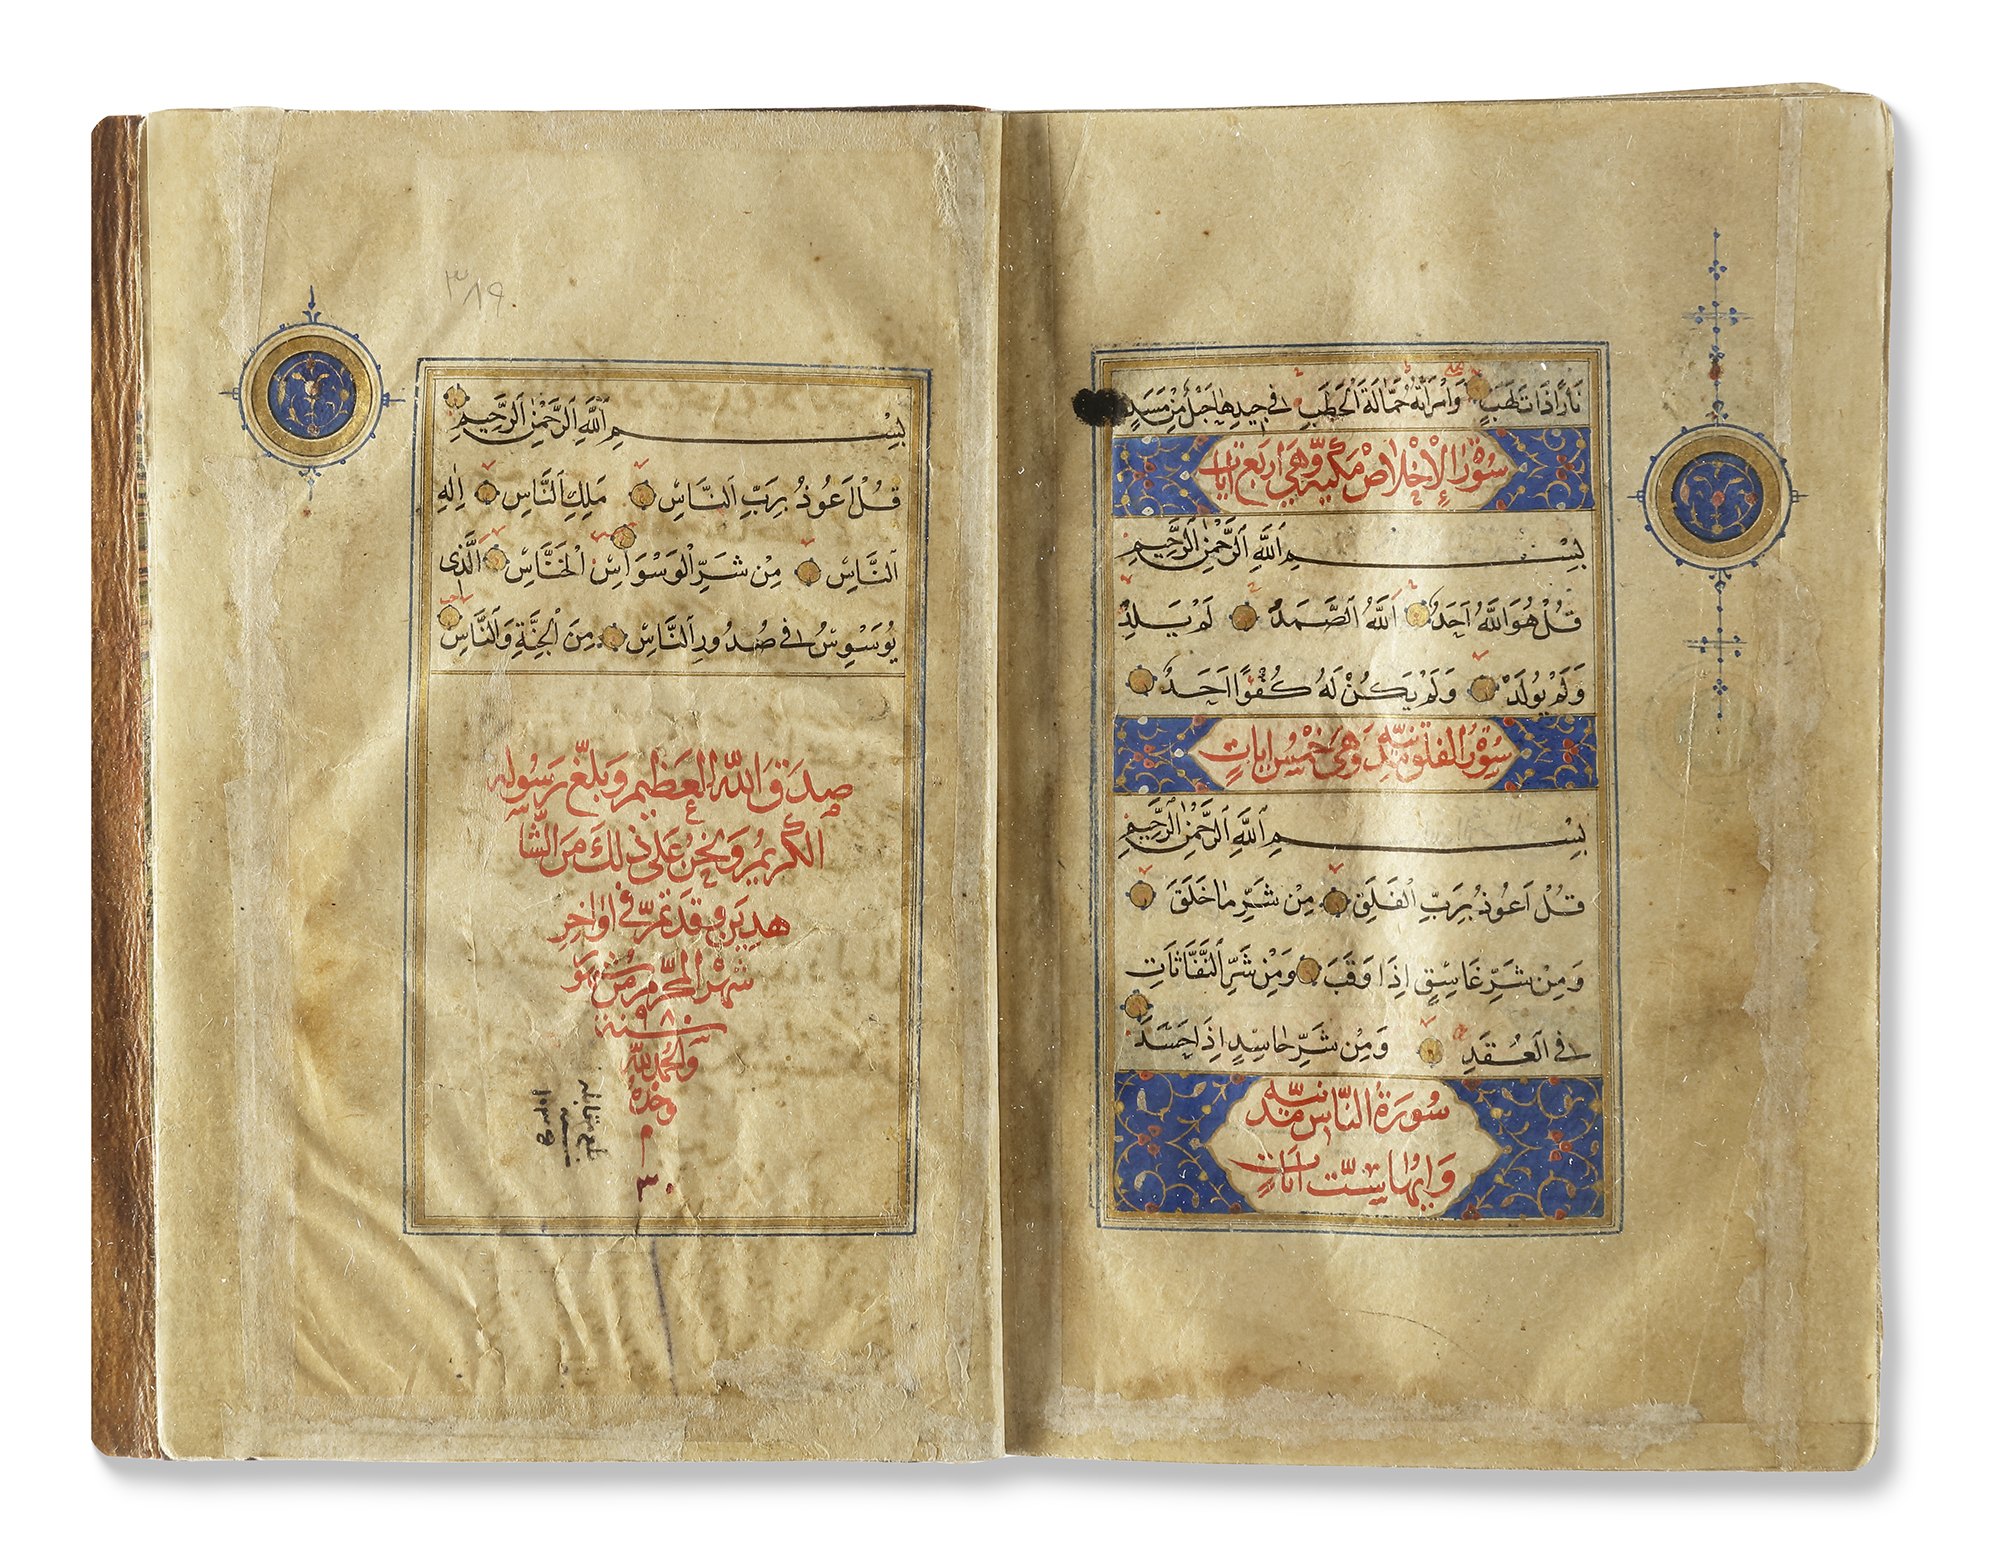 نَارًا ذَاتَ لَهَبٍ وَامْرَاَتُهُ حَمَّالَةَ الْحَطَبِ فِي جِيدِهَا حَبْلٌ مِنْ مَسَدٍ
سُوْرَةُ الْاِخْلَاصِ مَكِّيَّة وَهِيَ اَرْبَعُ اٰيَات
بِسْمِ اللَّهِ الرَّحْمٰنِ الرَّحِيمِ
قُلْ هُوَ اللَّهُ اَحَدٌ اَللَّهُ الصَّمَدُ لَمْ يَلِدْ
وَلَمْ يُولَدْ وَلَمْ يَكُنْ لَهُ كُفُوًا اَحَدٌ
سُوْرَةُ الفلق مدنية وَهِيَ خَمْسُ اٰيَاتٍ
بِسْمِ اللَّهِ الرَّحْمٰنِ الرَّحِيمِ
قُلْ اَعُوذُ بِرَبِّ الْفَلَقِ مِنْ شَرِّ مَا خَلَقَ
وَمِنْ شَرِّ غَاسِقٍ اِذَا وَقَبَ وَمِنْ شَرِّ النَّفَّاثَاتِ
فِي الْعُقَدِ وَمِنْ شَرِّ حَاسِدٍ اِذَا حَسَدَ
سُورَةُ النَّاسِ مدنية
وَاٰيُهَا سِتُّ اٰيَاتٍ
٣٨٩
بِسْمِ اللَّهِ الرَّحْمٰنِ الرَّحِيمِ
قُلْ اَعُوذُ بِرَبِّ النَّاسِ مَلِكِ النَّاسِ اِلٰهِ
النَّاسِ مِنْ شَرِّ الْوَسْوَاسِ الْخَنَّاسِ الَّذِي
يُوَسْوِسُ فِي صُدُورِ النَّاسِ مِنَ الْجِنَّةِ وَالنَّاسِ
صَدَقَ اللَّهُ الْعَظِيمُ وَبَلَّغَ رَسُولُه
الْكَرِيمُ وَنَحْنُ عَلَى ذٰلِكَ مِنَ الشَّا
هِدِينَ وَقَدْ تَمَّ فِي اَوَاخِرِ
شَهْرِ الْمُحَرَّمِ مِنْ شُهُو
سنة ٩٨٠
وَالْحَمْدُ لِلَّهِ
وَحْدَهُ
م
٣٠